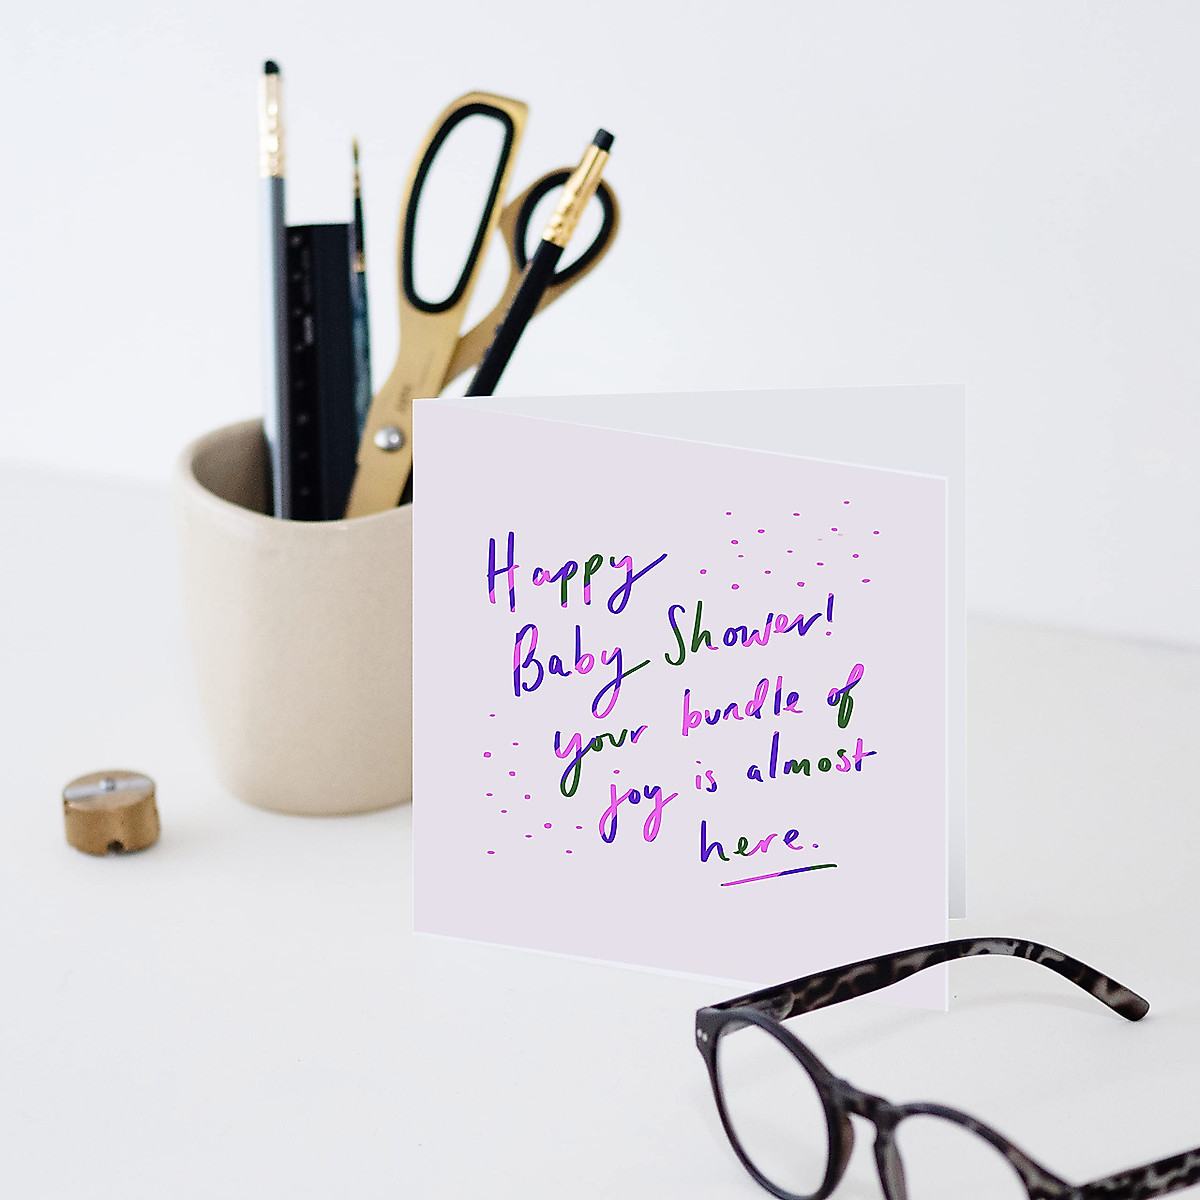 Happy
Baby Shower!
your bundle of
joy is almost
here.